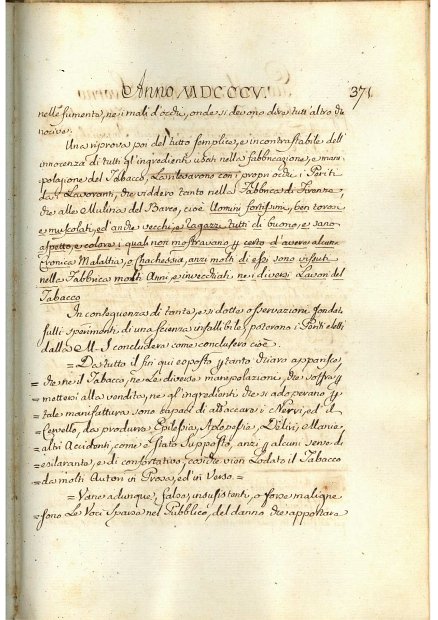 Anno MDCCCV.
371
nelle fumenta, ne i mali d'occhi, onde si devono dire tutt'altro che
nocive.
Una riprova poi del tutto semplice, e incontrastabile dell'
innocenza di tutti gl'ingredienti usati nella fabbricazione, e mani
polazione del Tabacco, La rilevarono con i propri occhi i Periti
da i Lavoranti, che viddero tanto nella Fabbrica di Firenze,
che alle Mulina del Barco, cioè Uomini fortissimi, ben torosi
e muscolati, ed anche vecchi, e ragazzi tutti di buono, e sano
aspetto, e colore, i quali non mostravano certo d'avere alcuna
Cronica Malattia, o Chachessia, anzi molti di essi sono in
nella Fabbrica molti Anni, e invecchiati ne i diversi Lavori del
Tabacco
In conseguenza di tante, e sì dotte osservazioni fondate
sulli sperimenti di una scienza infallibile, poterono i Periti eletti
dalla M. I concludere come conclusero cioè
= Da tutto il fin qui esposto tanto chiaro apparisce,
= che ne il Tabacco, ne Le diverse manipolazioni, che soffre
= mettersi alla vendita, ne gl'ingredienti che si adoperano
= tale manifattura sono capaci di attaccare i Nervi, ed il
= Cervello, da produrre Epilessia, Apoplessie, Delirj, Manie,
= altri Accidenti, come è stato supposto, anzi alcuni serve di
= esilarante, e di confortativo, cosicche vien Lodato il Tabacco
= da molti Autori in Prosa, ed in Verso =
= Vane adunque, false, insussistenti, o forse maligne
sono Le Voci sparse nel Pubblico, del danno che apportava